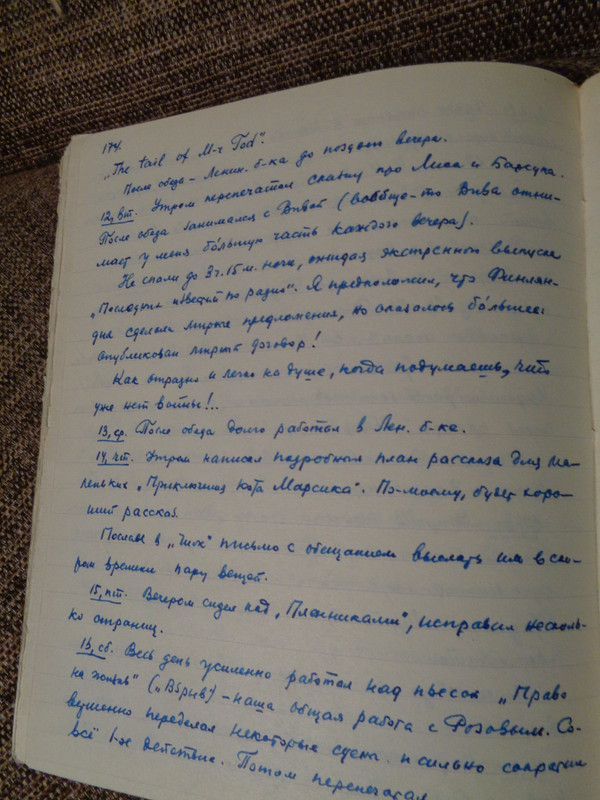 174.
„The tail of M-r Tod“.
После обеда – Ленин. б-ка до позднего вечера.
12, вт. Утром перепечатал сказку про Лиса и Барсука.
После обеда занимался с Вивой (вообще-то Вива отни-
мает у меня бо́льшую часть каждого вечера).
Не спали до 3 ч. 15 м. ночи, ожидая экстренного выпуска
„Последних известий по радио“. Я предположил, что Финлян-
дия сделала мирные предложения, но оказалось бо́льшее:
опубликован мирный договор!
Как отрадно и легко на душе, когда подумаешь, что
уже нет войны!..
13, ср. После обеда долго работал в Лен. б-ке.
14, чт. Утром написал подробный план рассказа для ма-
леньких „Приключения кота Марсика“. По-моему, будет хоро-
ший рассказ.
Послал в „Чиж“ письмо с обещанием выслать им в ско-
ром времени пару вещей.
15, пт. Вечером сидел над „Пленниками“, исправил несколь-
ко страниц.
16, сб. Весь день усиленно работал над пьесой „Право
на жизнь“ („Взрыв“) – наша общая работа с Розовым. Со-
вершенно переделал некоторые сцены и сильно сократил
всё 1-ое действие. Потом перепечатал